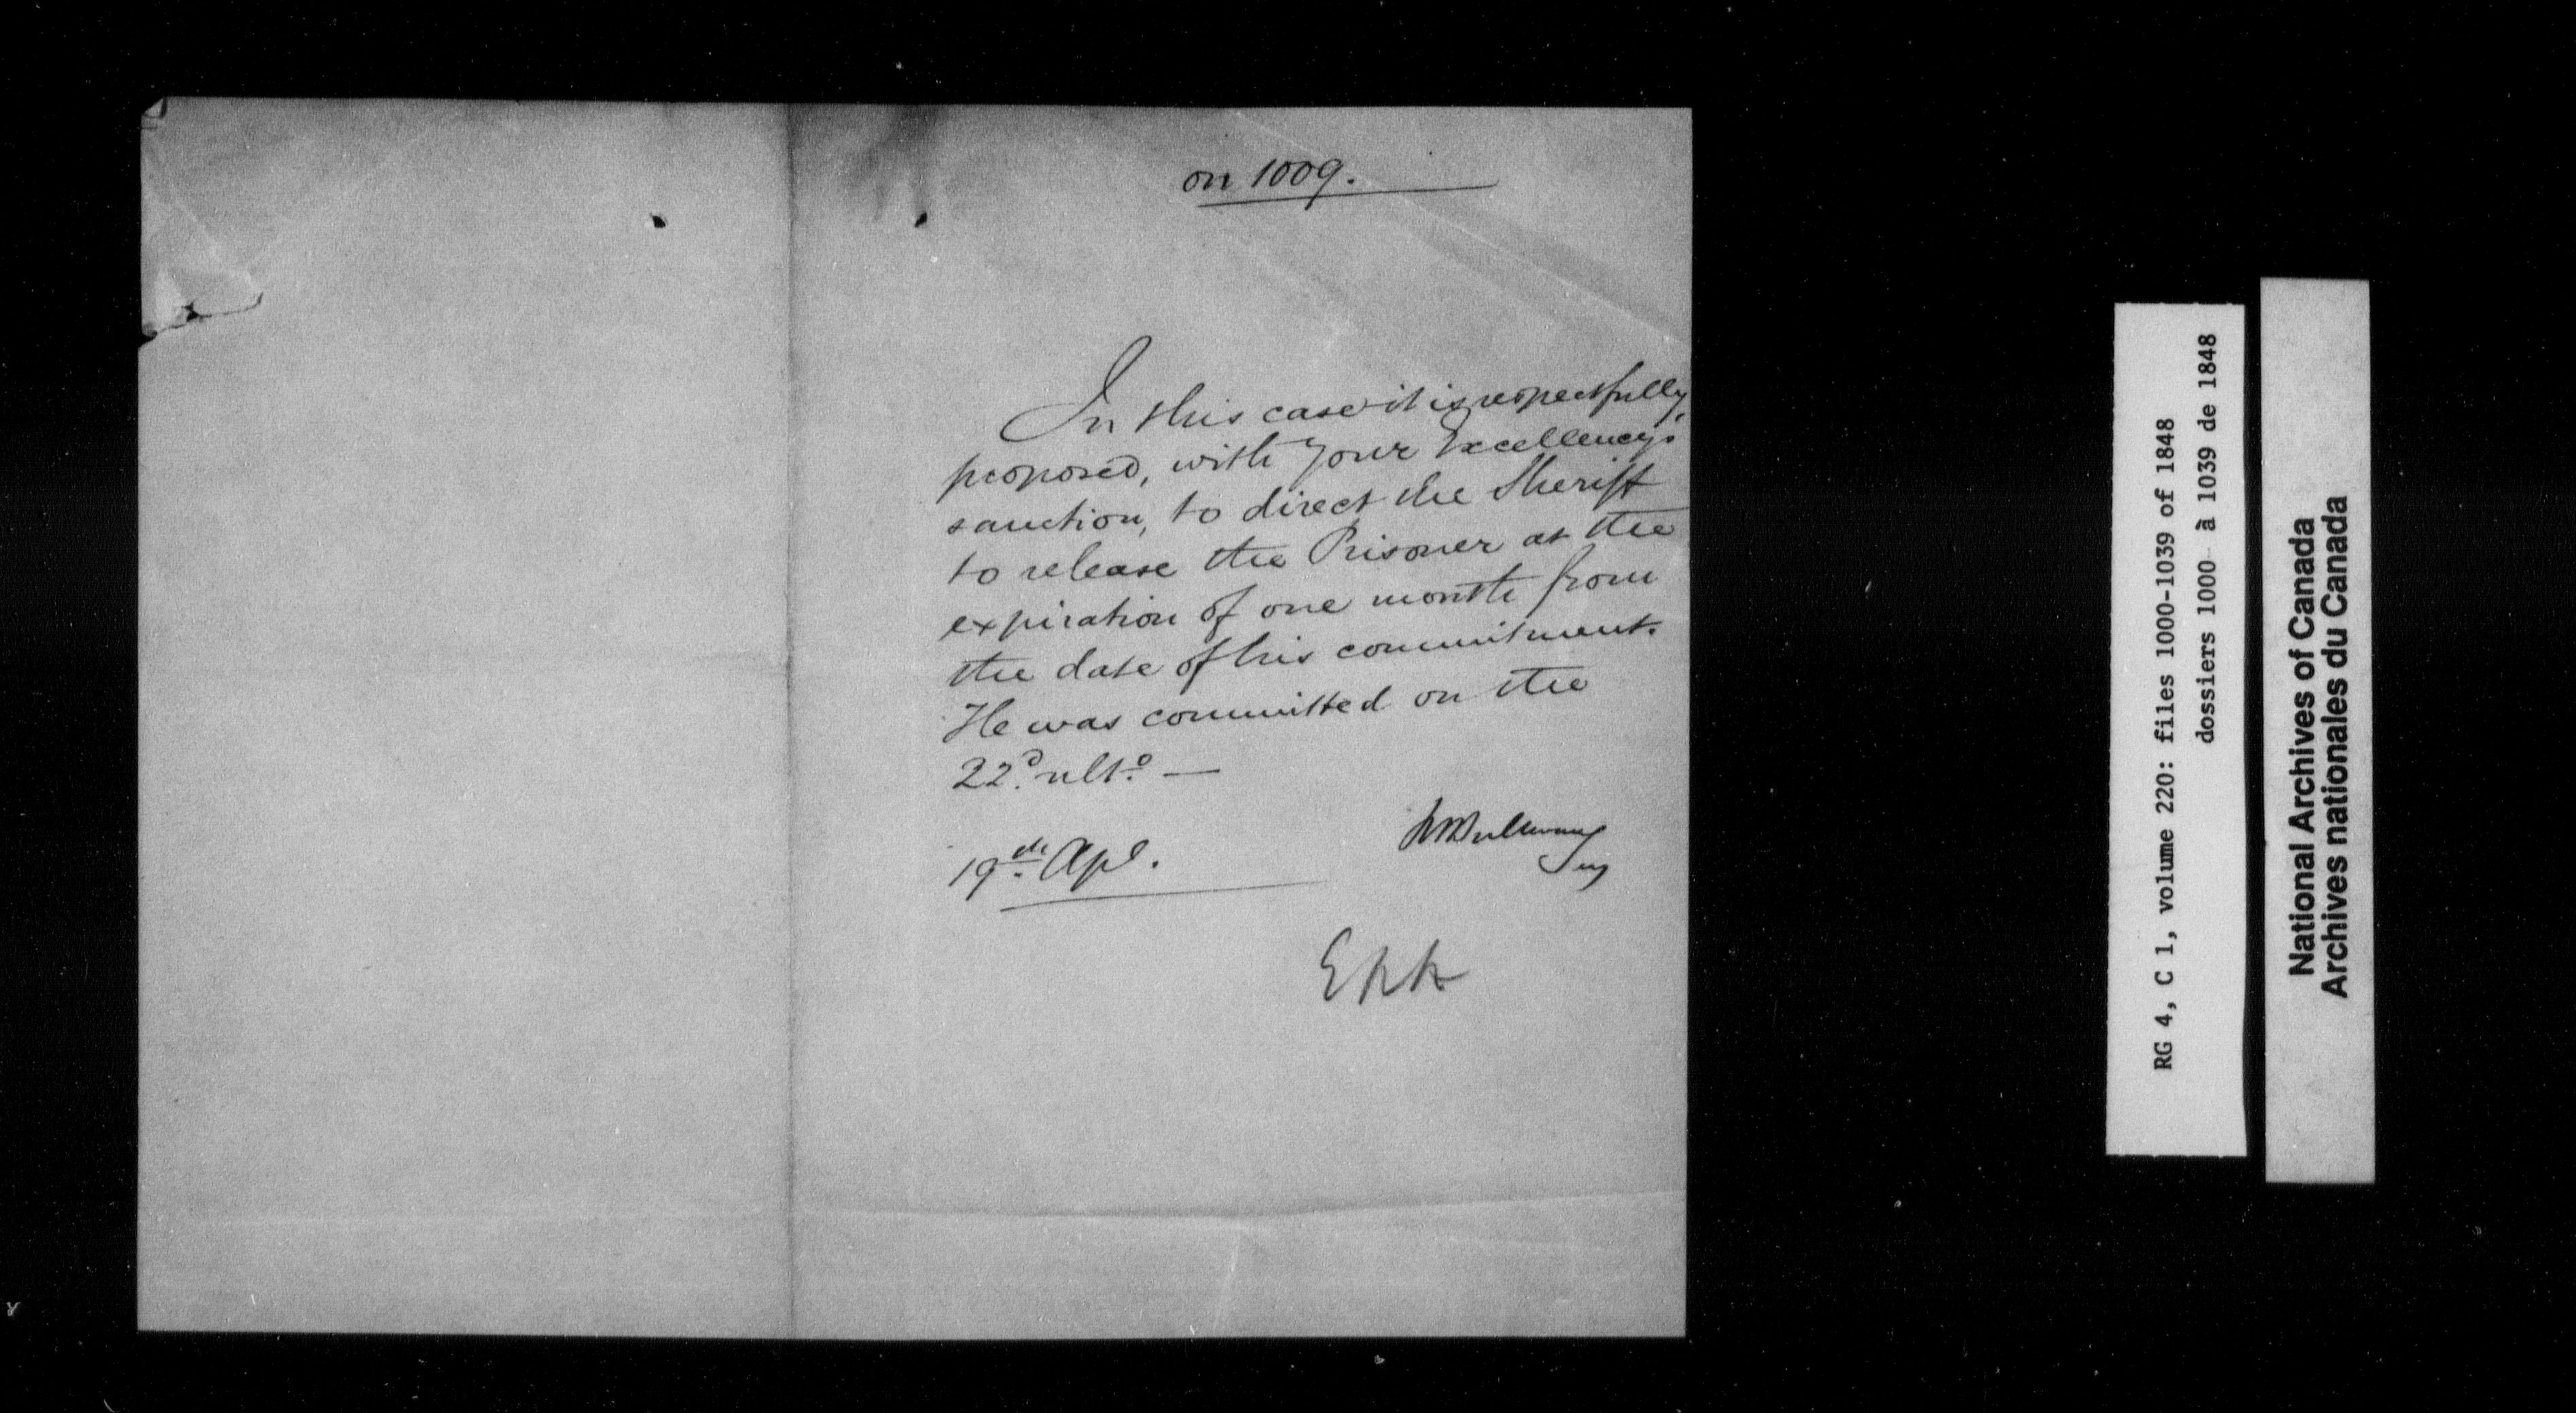 on 1009.
In this case it is respectfully
proposed, with Your Excellency's
sanction, to direct the Sheriff
to release the Prisoner at the
expiration of one month from
the date of his commitment.
He was committed on the
22d. ulto. —
19th. Apl.
RG 4, C 1, volume 220: files 1000-1039 of 1848
dossiers 1000 à 1039 de 1848
National Archives of Canada
Archives nationales du Canada